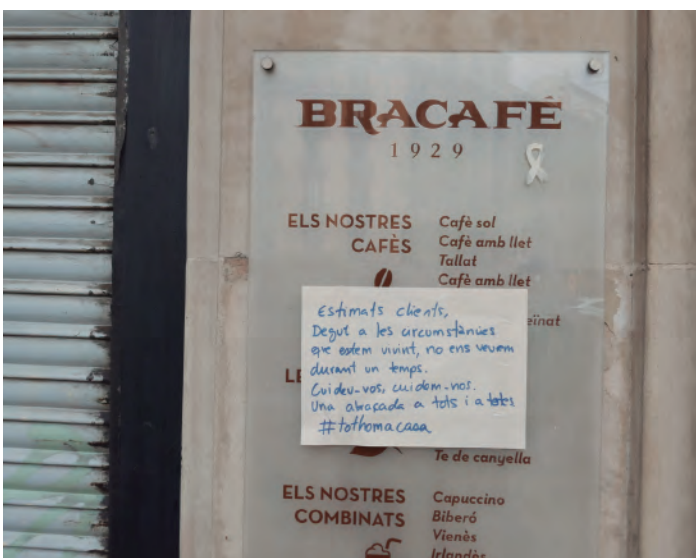 BRACAFÈ
1929
ELS NOSTRES
CAFÈS
Cafè sol
Cafè amb llet
Tallat
Cafè amb llet
Estimats clients,
Degut a les circumstàncies
que estem vivint, no ens veuem
durant un temps.
Cuideu-vos, cuidem-nos.
Una abraçada a tots i a totes
#tothomacasa
Te de canyella
ELS NOSTRES
COMBINATS
Capuccino
Biberó
Vienès
Irlandès